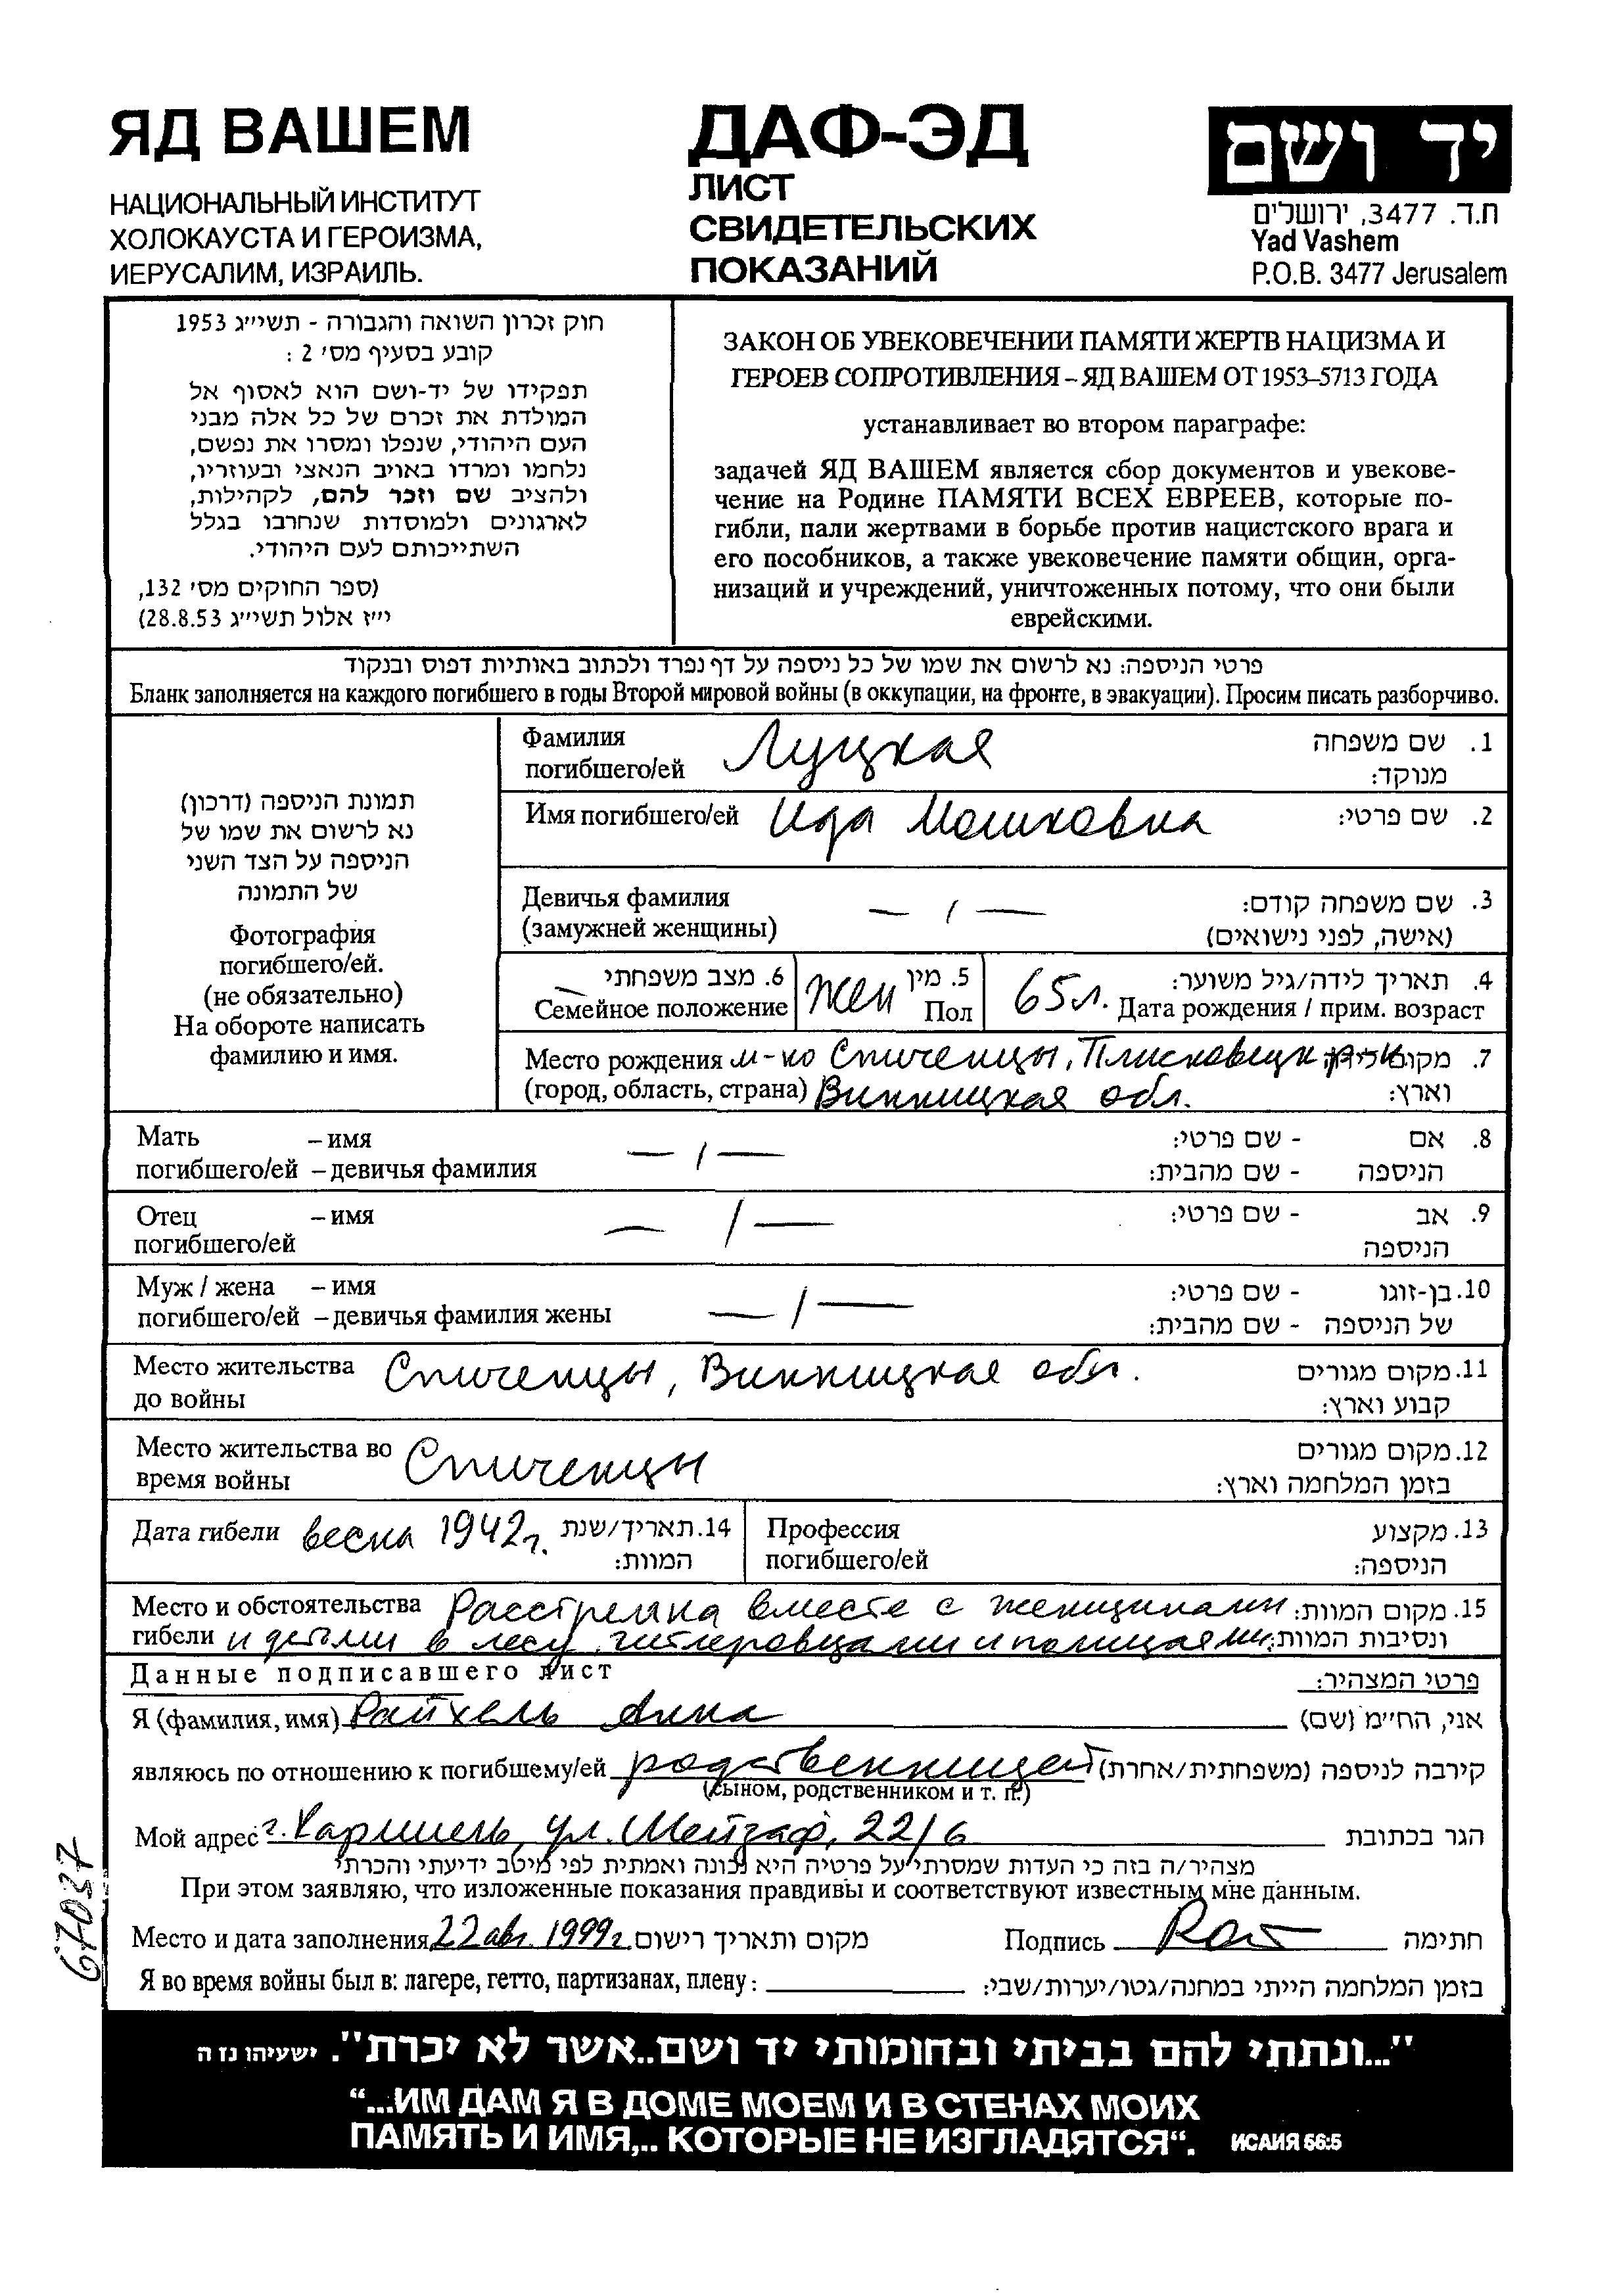 ЯД ВАШЕМ
НАЦИОНАЛЬНЫЙ ИНСТИТУТ
ХОЛОКАУСТА И ГЕРОИЗМА,
ИЕРУСАЛИМ, ИЗРАИЛЬ.
ДАФ-ЭД
ЛИСТ
СВИДЕТЕЛЬСКИХ
ПОКАЗАНИЙ
יד ושם
ת.ד. 3477, ירושלים
Yad Vashem
P.O.B. 3477 Jerusalem
חוק זכרון השואה והגבורה - תשי״ג 1953
קובע בסעיף מס׳ 2 :
תפקידו של יד-ושם הוא לאסוף אל
המולדת את זכרם של כל אלה מבני
העם היהודי, שנפלו ומסרו את נפשם,
נלחמו ומרדו באויב הנאצי ובעוזריו,
ולהציב שם וזכר להם, לקהילות,
לארגונים ולמוסדות שנחרבו בגלל
השתייכותם לעם היהודי.
(ספר החוקים מס׳ 132,
י״ז אלול תשי״ג 28.8.53)
ЗАКОН ОБ УВЕКОВЕЧЕНИИ ПАМЯТИ ЖЕРТВ НАЦИЗМА И
ГЕРОЕВ СОПРОТИВЛЕНИЯ – ЯД ВАШЕМ ОТ 1953–5713 ГОДА
устанавливает во втором параграфе:
задачей ЯД ВАШЕМ является сбор документов и увекове-
чение на Родине ПАМЯТИ ВСЕХ ЕВРЕЕВ, которые по-
гибли, пали жертвами в борьбе против нацистского врага и
его пособников, а также увековечение памяти общин, орга-
низаций и учреждений, уничтоженных потому, что они были
еврейскими.
פרטי הניספה: נא לרשום את שמו של כל ניספה על דף נפרד ולכתוב באותיות דפוס ובנקוד
Бланк заполняется на каждого погибшего в годы Второй мировой войны (в оккупации, на фронте, в эвакуации). Просим писать разборчиво.
תמונת הניספה (דרכון)
נא לרשום את שמו של
הניספה על הצד השני
של התמונה
Фотография
погибшего/ей.
(не обязательно)
На обороте написать
фамилию и имя.
Фамилия Луцкая 1. שם משפחה
погибшего/ей מנוקד:
Имя погибшего/ей Ида Мошковна 2. שם פרטי:
Девичья фамилия — / — 3. שם משפחה קודם:
(замужней женщины) (אישה, לפני נישואים)
— 6. מצב משפחתי 5. מין 4. תאריך לידה/גיל משוער:
Семейное положение жен Пол 65 л. Дата рождения / прим. возраст
Место рождения м-ко Спиченцы, Плисковецк р-н 7. מקום לידה
(город, область, страна) Винницкая обл. וארץ:
Мать – имя — / — 8. אם - שם פרטי:
погибшего/ей – девичья фамилия הניספה - שם מהבית:
Отец – имя — / — 9. אב - שם פרטי:
погибшего/ей הניספה
Муж / жена – имя — / — 10. בן-זוגו - שם פרטי:
погибшего/ей – девичья фамилия жены של הניספה - שם מהבית:
Место жительства Спиченцы, Винницкая обл. 11. מקום מגורים
до войны קבוע וארץ:
Место жительства во Спиченцы 12. מקום מגורים
время войны בזמן המלחמה וארץ:
Дата гибели весна 1942 г. 14. תאריך/שנת Профессия 13. מקצוע
המוות: погибшего/ей הניספה:
Место и обстоятельства Расстреляна вместе с женщинами 15. מקום המוות:
гибели и детьми в лесу гитлеровцами и полицаями. ונסיבות המוות:
Данные подписавшего лист פרטי המצהיר:
Я (фамилия, имя) Райхель Анна אני, הח״מ (שם)
являюсь по отношению к погибшему/ей родственницей קירבה לניספה (משפחתית/אחרת)
(сыном, родственником и т. п.)
Мой адрес г. Кармиель, ул. Шейзаф, 22/6 הגר בכתובת
מצהיר/ה בזה כי העדות שמסרתי על פרטיה היא נכונה ואמתית לפי מיטב ידיעתי והכרתי
При этом заявляю, что изложенные показания правдивы и соответствуют известным мне данным.
Место и дата заполнения 22 авг. 1999 г. מקום ותאריך רישום Подпись חתימה
Я во время войны был в: лагере, гетто, партизанах, плену: בזמן המלחמה הייתי במחנה/גטו/יערות/שבי:
67037
"...ונתתי להם בביתי ובחומותי יד ושם..אשר לא יכרת". ישעיהו נז ה
“...ИМ ДАМ Я В ДОМЕ МОЕМ И В СТЕНАХ МОИХ
ПАМЯТЬ И ИМЯ,.. КОТОРЫЕ НЕ ИЗГЛАДЯТСЯ“. ИСАИЯ 56:5